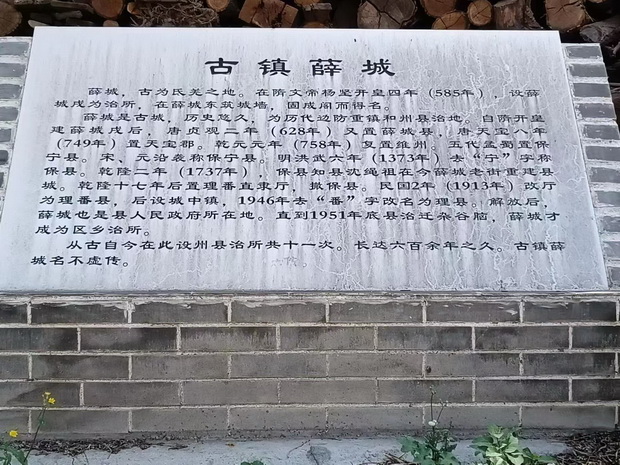 古镇薛城
薛城，古为氐羌之地。在隋文帝杨坚开皇四年（585年），设薛
城戍为治所，在薛城东筑城墙，固戍阁而得名。
薛城是古城，历史悠久，为历代边防重镇和州县治地。自隋开皇
建薛城戍后，唐贞观二年（628年）又置薛城县，唐天宝八年
（749年）置天宝郡。乾元元年（758年）复置维州。五代孟蜀置保
宁县。宋、元沿袭称保宁县。明洪武六年（1373年）去“宁”字称
保县。乾隆二年（1737年），保县知县沈绳祖在今薛城老街重建县
城。乾隆十七年后置理番直隶厅，撤保县。民国2年（1913年）改厅
为理番县，后设城中镇，1946年去“番”字改名为理县。解放后，
薛城也是县人民政府所在地。直到1951年底县治迁杂谷脑，薛城才
成为区乡治所。
从古自今在此设州县治所共十一次。长达六百余年之久。古镇薛
城名不虚传。